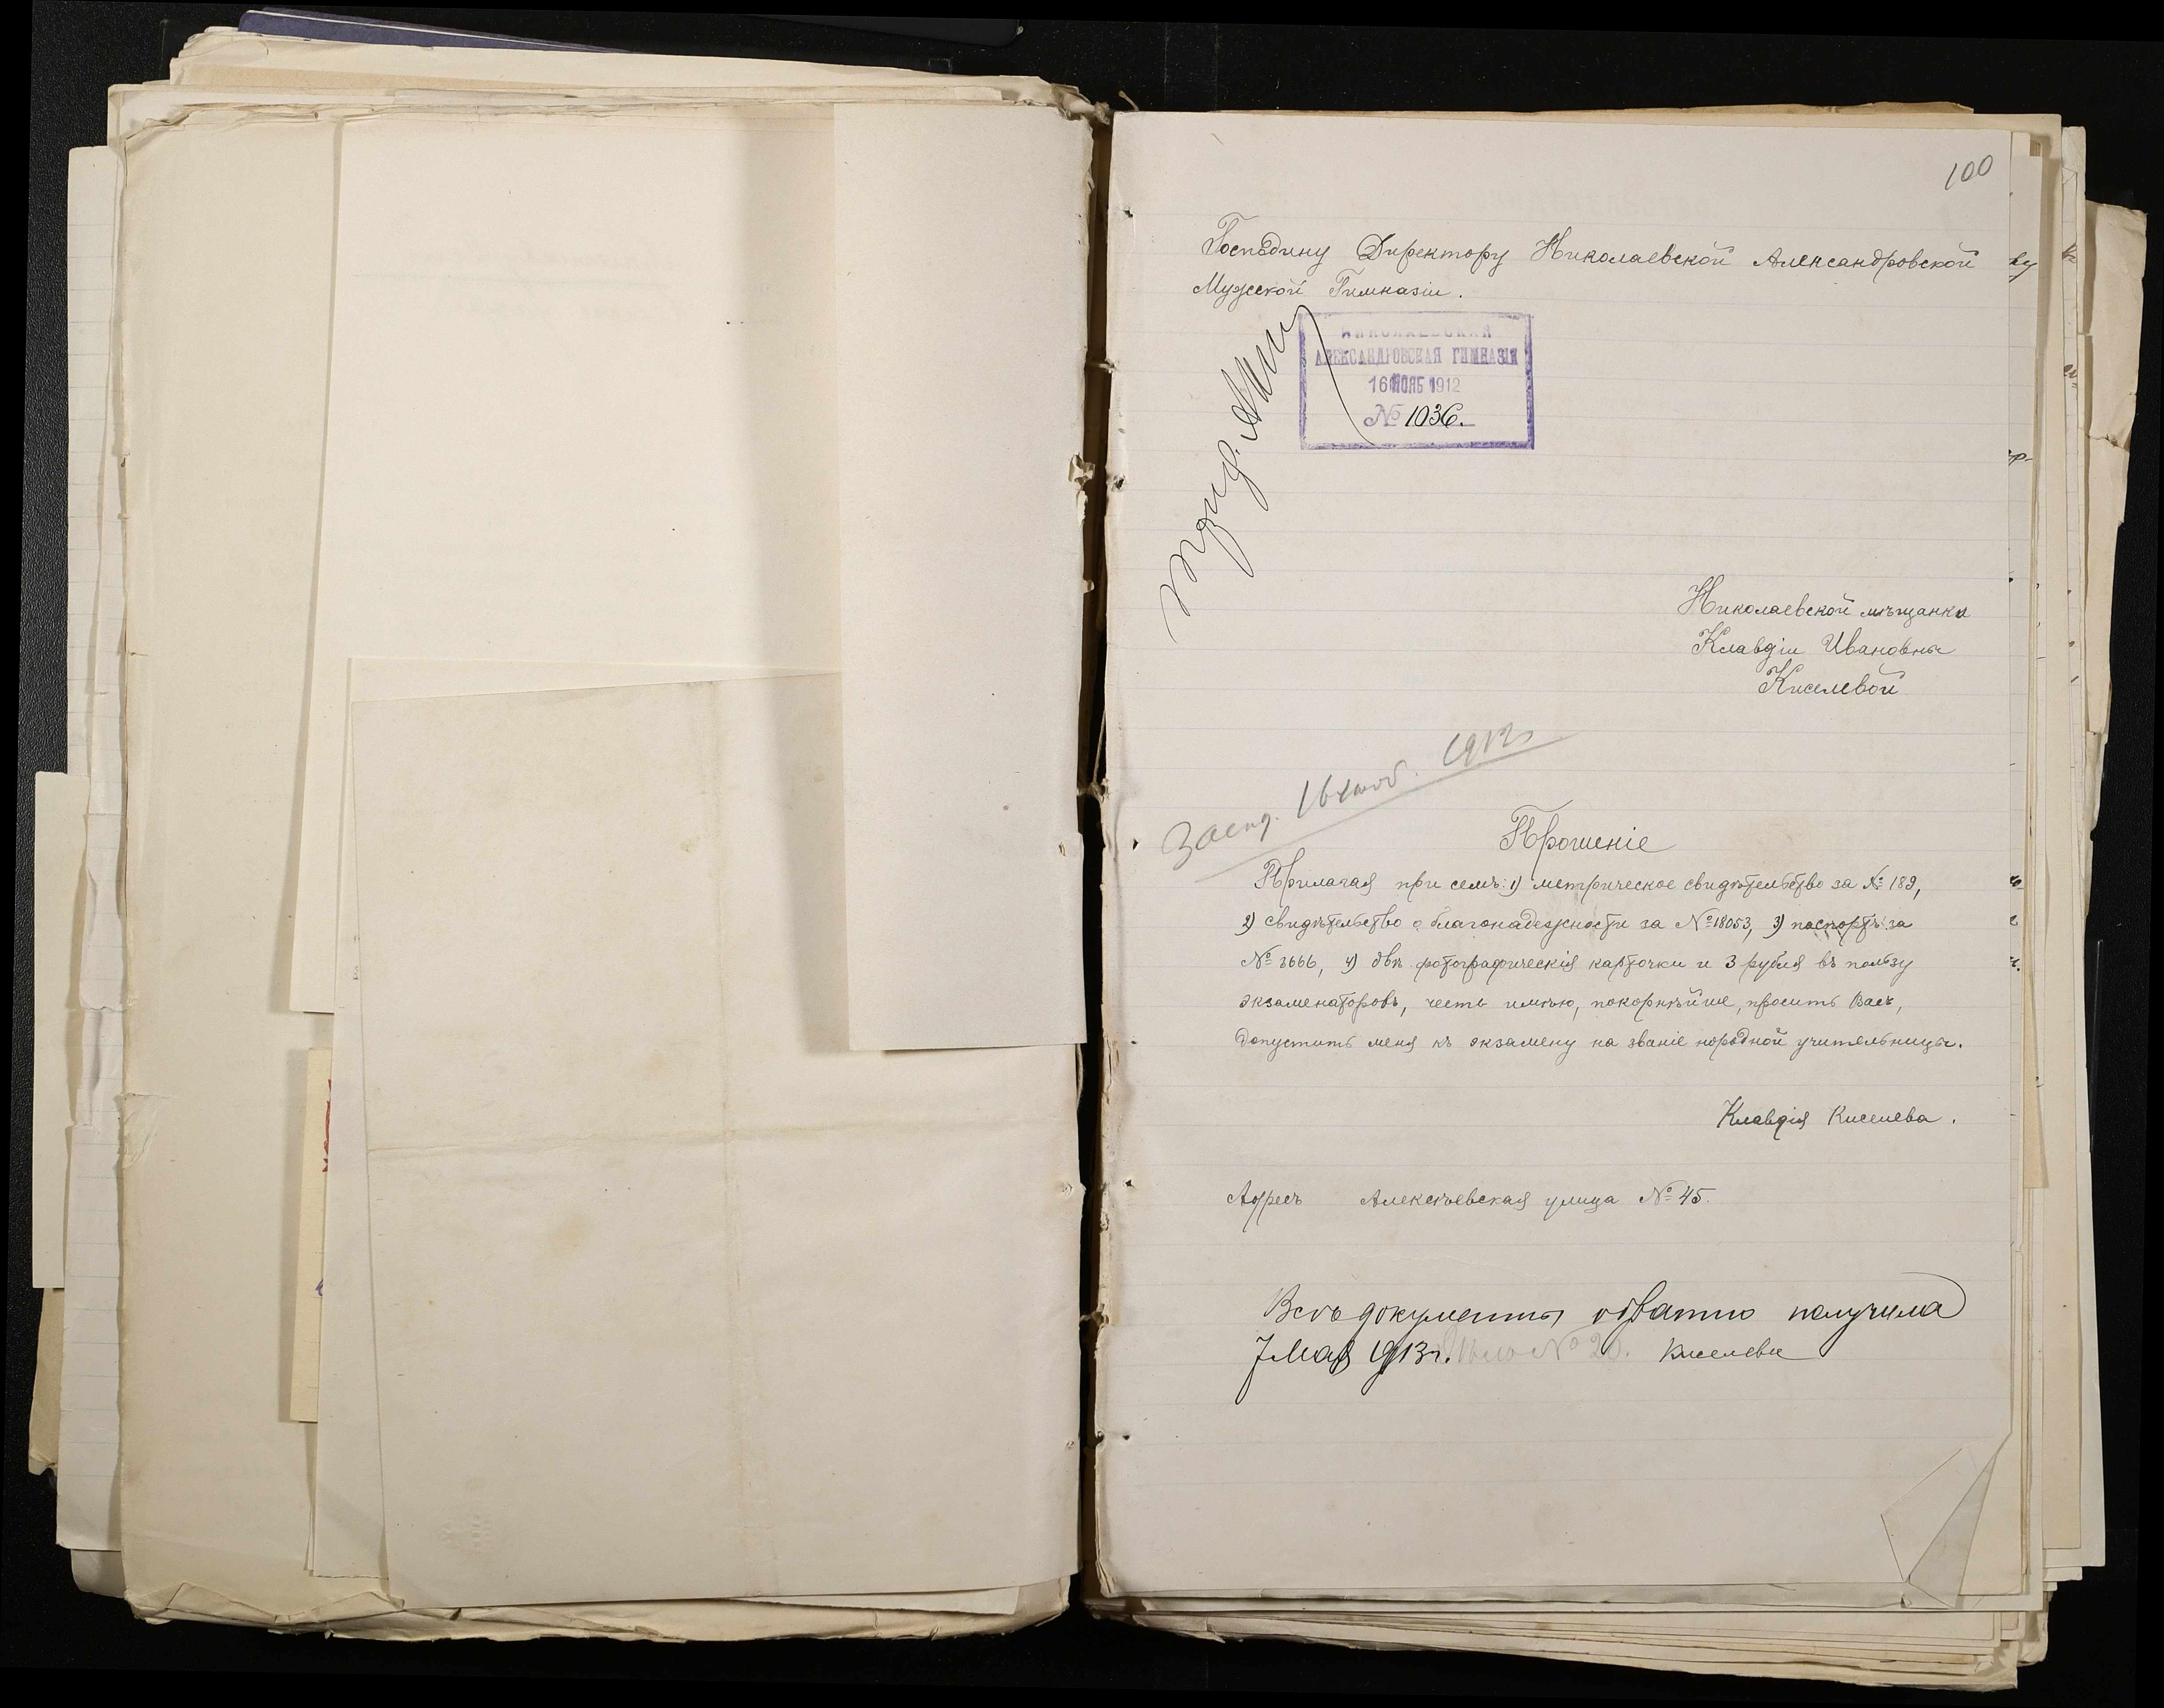 100
Господину Директору Николаевской Александровской
Мужской Гимназіи.
НИКОЛАЕВСКАЯ
АЛЕКСАНДРОВСКАЯ ГИМНАЗІЯ
16 НОЯБ 1912
№ 1036.
Николаевской мѣщанки
Клавдіи Ивановны
Киселевой
1912
Прошеніе
Прилагая при семъ: 1) метрическое свидѣтельство за № 189,
2) свидѣтельство о благонадежности за № 18053, 3) паспортъ за
№ 3666, 4) двѣ фотографическія карточки и 3 рубля въ пользу
экзаменаторовъ, честь имѣю, покорнѣйше, просить Васъ,
допустить меня къ экзамену на званіе народной учительницы.
Клавдія Киселева.
Адресъ Алексѣевская улица № 45.
Всѣ документы обратно получила
7 Мая 1913 г. Киселева